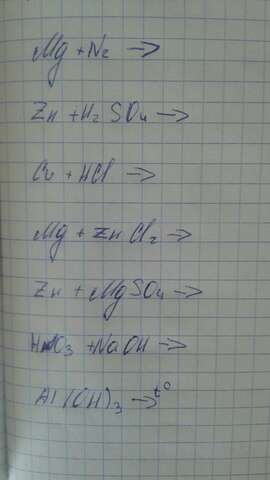 Mg + N₂ →
Zn + H₂SO₄ →
Cu + HCl →
Mg + ZnCl₂ →
Zn + MgSO₄ →
HNO₃ + NaOH →
Al(OH)₃ →t°